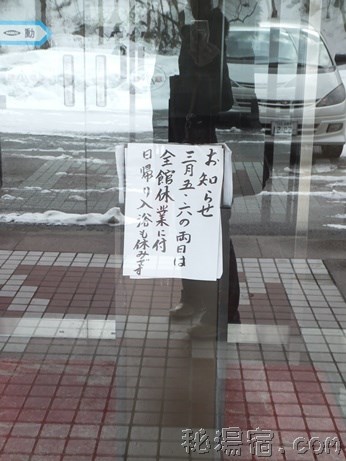 お知らせ
三月五・六の両日は
全館休業に付
日帰り入浴も休みです
動
秘湯宿.com